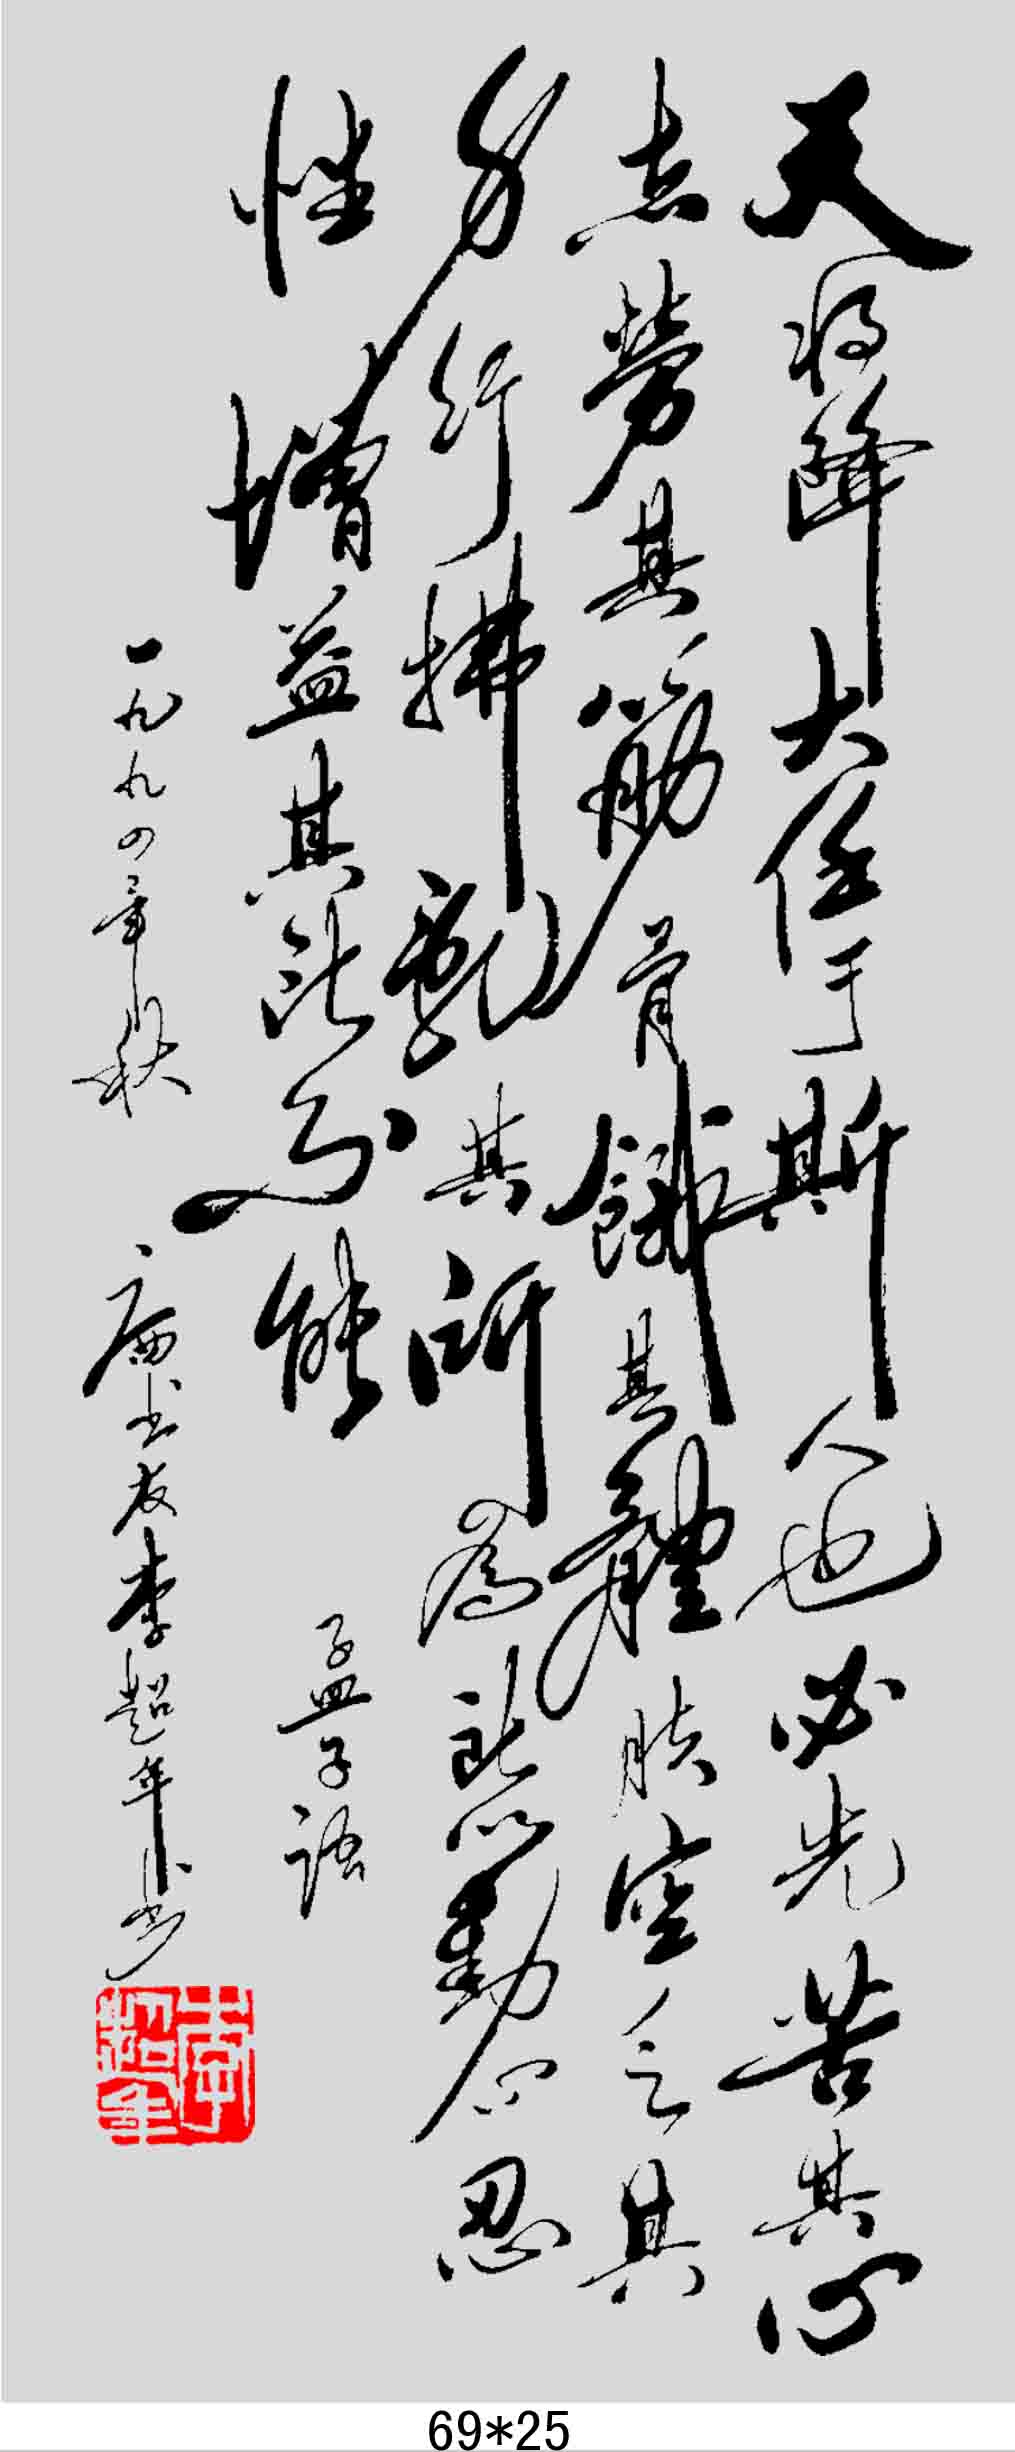 天将降大任于斯人也必先苦其心
志勞其筋骨餓其體肤空乏其
身行拂亂其所為所以動心忍
性增益其所不能
孟子語
一九九四年秋
书友李超年
李超年
69*25